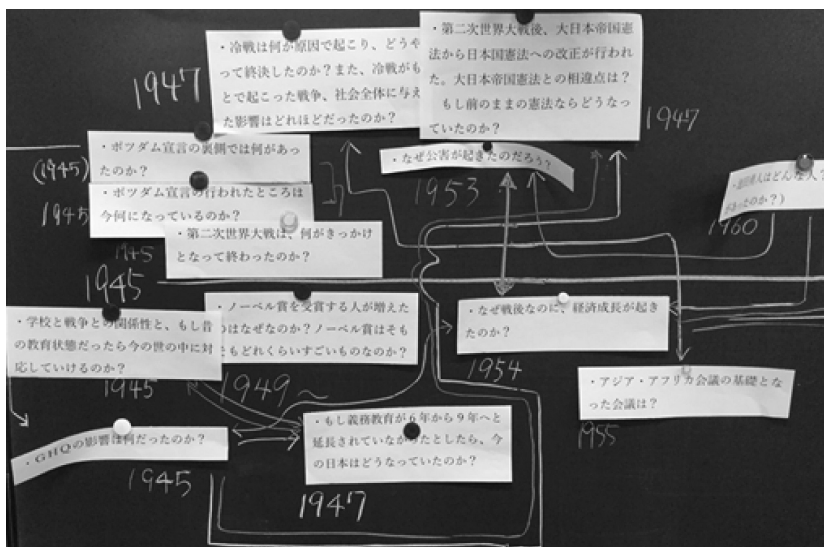 ・冷戦は何が原因で起こり、どうや
って終決したのか？また、冷戦がも
とで起こった戦争、社会全体に与え
た影響はどれほどだったのか？
1947
・第二次世界大戦後、大日本帝国憲
法から日本国憲法への改正が行われ
た。大日本帝国憲法との相違点は？
もし前のままの憲法ならどうなっ
ていたのか？
1947
・ポツダム宣言の裏側では何があっ
たのか？
(1945)
・なぜ公害が起きたのだろう？
1953
・ポツダム宣言の行われたところは
今何になっているのか？
1945
はどんな人？
たのか？）
1960
・第二次世界大戦は、何がきっかけ
となって終わったのか？
1945
1945
・学校と戦争との関係性と、もし昔
の教育状態だったら今の世の中に対
応していけるのか？
1945
・ノーベル賞を受賞する人が増えた
のはなぜなのか？ノーベル賞はそも
そもどれくらいすごいものなのか？
1949～
・なぜ戦後なのに、経済成長が起き
たのか？
1954
・アジア・アフリカ会議の基礎とな
った会議は？
1955
・GHQの影響は何だったのか？
1945
・もし義務教育が６年から９年へと
延長されていなかったとしたら、今
の日本はどうなっていたのか？
1947